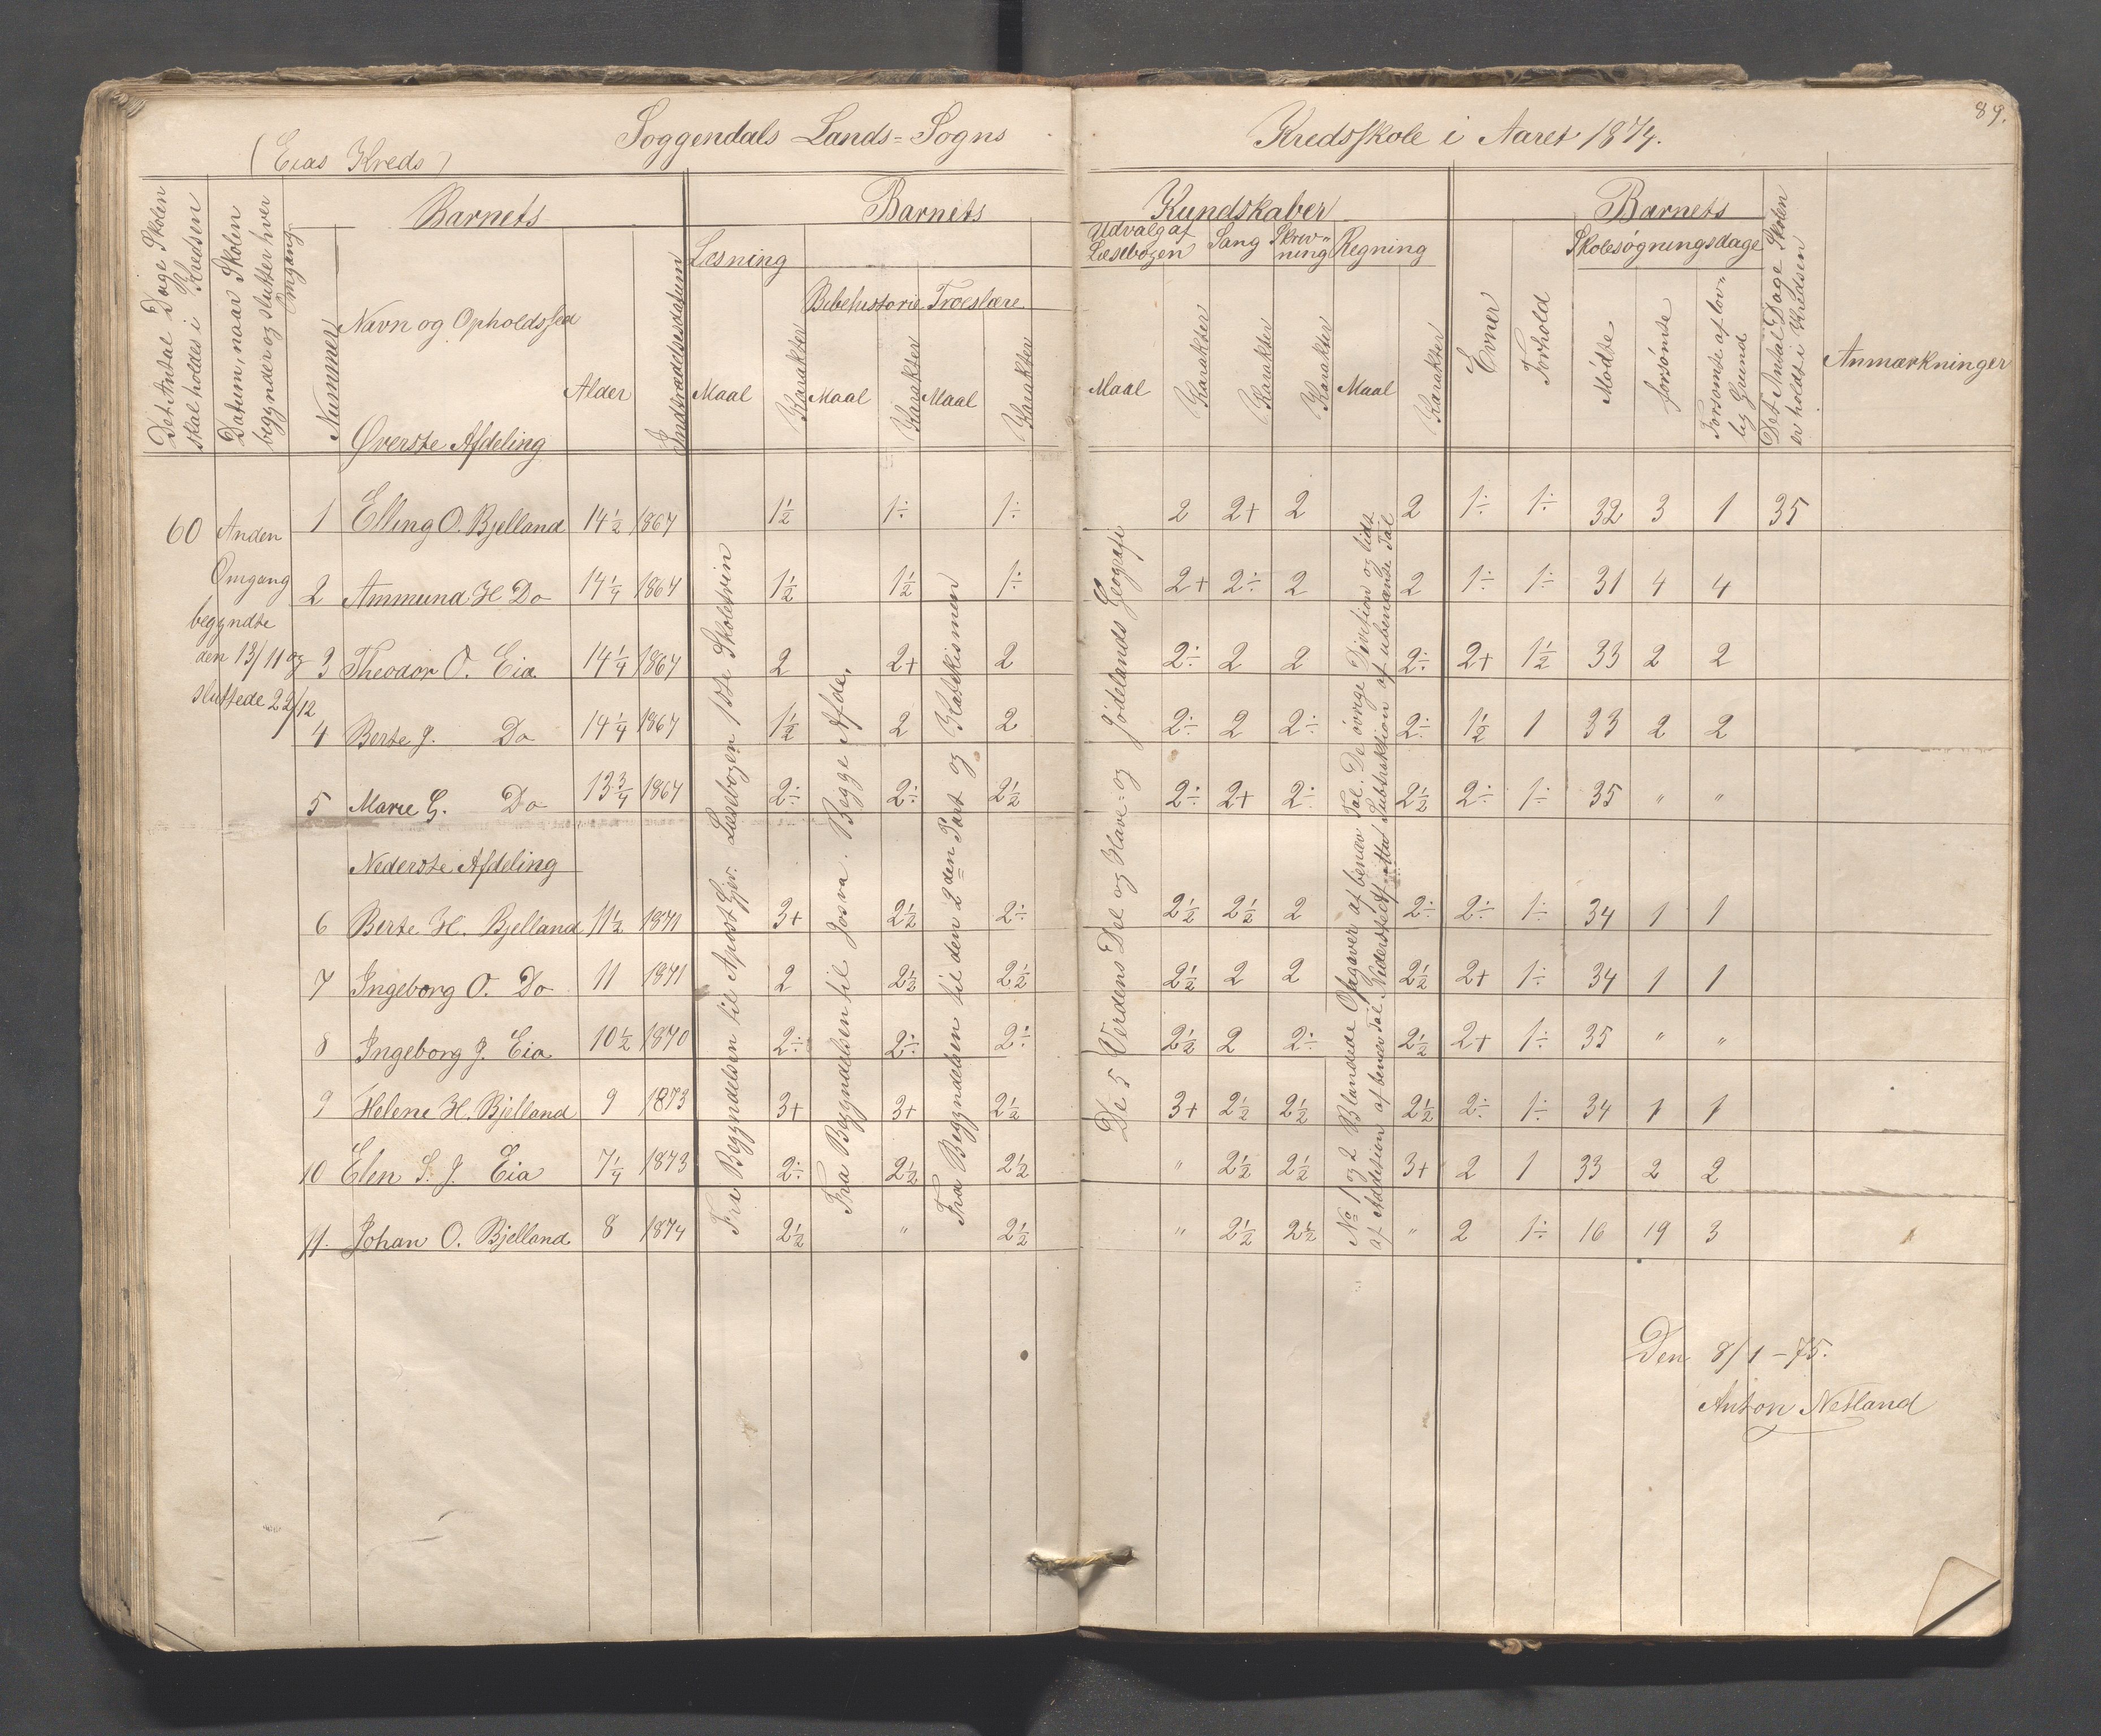 89.
(Eias Kreds) Soggendals Lands=Sogns Kredsskole i Aaret 1874.
Det Antal Dage Skolen skal holdes i Kredsen
Datum, naar Skolen begynder og slutter hver Omgang.
Barnets
Nummer
Navn og Opholdssted
Alder
Indtrædelsesdatum
Barnets Kundskaber
Læsning
Maal Karakter
Bibelhistorie
Maal Karakter
Troeslære
Maal Karakter
Udvalg af Læsebogen
Maal Karakter
Sang
Karakter
Skrivning
Karakter
Regning
Maal Karakter
Barnets
Evner
Forhold
Skolesøgningsdage
Mødte
forsømte
Forsømte af lovlig Grund
Det Antal Dage Skolen er holdt i Kredsen
Anmærkninger
Øverste Afdeling
60 Anden
Omgang
begyndte
den 13/11 og
sluttede 22/12
1 Elling O. Bjelland 14½ 1867 1½ 1÷ 1÷ 2 2+ 2 2 1÷ 1÷ 32 3 1 35
2 Ammund H Do 14¼ 1867 1½ 1½ 1÷ 2+ 2÷ 2 2 1÷ 1÷ 31 4 4
3 Theodor O. Eia 14¼ 1867 2 2+ 2 2÷ 2 2 2÷ 2+ 1½ 33 2 2
4 Berte J. Do 14¼ 1867 1½ 2 2 2÷ 2 2÷ 2÷ 1½ 1 33 2 2
5 Marie G. Do 13¾ 1867 2÷ 2÷ 2½ 2÷ 2+ 2÷ 2½ 2÷ 1÷ 35 " "
Nederste Afdeling
6 Berte H. Bjelland 11½ 1871 3+ 2½ 2÷ 2½ 2½ 2 2÷ 2÷ 1÷ 34 1 1
7 Ingeborg O. Do 11 1871 2 2½ 2½ 2½ 2 2 2½ 2+ 1÷ 34 1 1
8 Ingeborg J Eia 10½ 1870 2÷ 2÷ 2÷ 2½ 2 2÷ 2½ 2+ 1÷ 35 " "
9 Helene H. Bjelland 9 1873 3+ 3+ 2½ 3+ 2½ 2½ 2½ 2÷ 1÷ 34 1 1
10 Elen S. J. Eia 7¼ 1873 2÷ 2½ 2½ " 2½ 2½ 3+ 2 1 33 2 2
11. Johan O. Bjelland 8 1874 2½ " 2½ " 2½ 2½ " 2 1÷ 16 19 3
Fra Begyndelsen til Apost Gjer. Læsebogen 1ste Skoletrin
Fra Begyndelsen til Josva. Begge Afde.
Fra Begyndelsen til den 2den Part og Katekismen
De 5 Verdens Del og Have= og Jødelands Geografi
No 1 og 2 Blandede Opgaver af benæv Tal. De øvrige Division og lidt
af Addition af benæv Tal Nederste Af. Subtraktion af ubenævnte Tal
Den 8/1-75.
Anton Netland